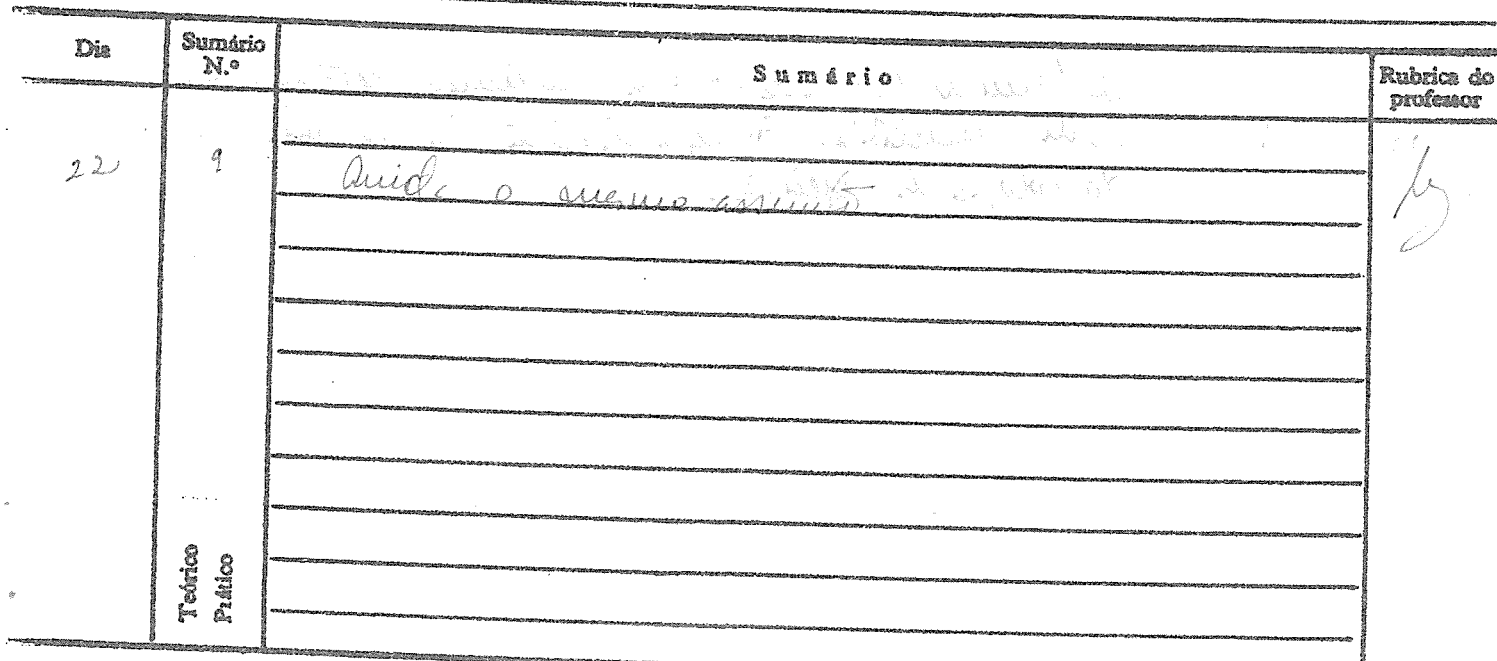 Dia
Sumário
N.º
Sumário
Rubrica do
professor
22
9
Ainda o mesmo assunto
Teórico
Prático